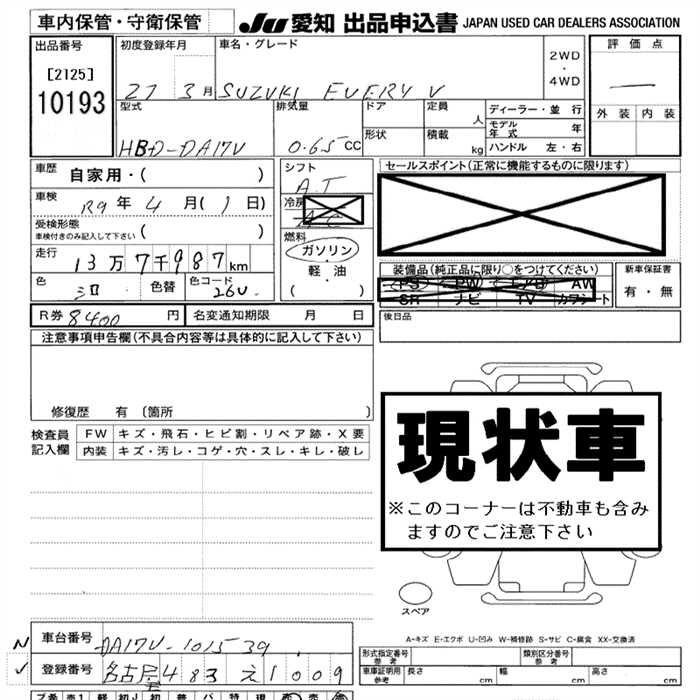 車内保管・守衛保管 JU 愛知 出品申込書 JAPAN USED CAR DEALERS ASSOCIATION
出品番号
[2125]
10193
初度登録年月
27 3月
車名・グレード
SUZUKI EVERY V
2WD
・
4WD
評価点
外装 内装
型式
HBD-DA17V
排気量
0.65 CC
ドア
形状
定員
人
積載
kg
ディーラー・並行
モデル年式 年
ハンドル 左・右
車歴
自家用・( )
車検
R9年4月(1日)
受検形態
車検付きのみ記入して下さい ( )
走行
13万7千987km
色
シロ
色替
色コード
26U
シフト
A.T
冷房
AC
燃料
ガソリン
・
軽・油
( )
セールスポイント(正常に機能するものに限ります)
装備品(純正品に限り○をつけてください)
PS PW AW
SR ナビ TV カワシート
新車保証書
有・無
後日品
R券 8400 円
名変通知期限 月 日
注意事項申告欄(不具合内容等は具体的に記入して下さい)
修復歴 有 〔箇所 〕
検査員
記入欄
FW キズ・飛石・ヒビ割・リペア跡・X要
内装 キズ・汚レ・コゲ・穴・スレ・キレ・破レ
現状車
※このコーナーは不動車も含み
ますのでご注意下さい
スペア
A-キズ E-エクボ U-凹み W-補修跡 S-サビ C-腐食 XX-交換済
車台番号
DA17V-101539
登録番号
名古屋 483 え 1009
型式指定番号
※参考
類別区分番号
※参考
車庫証明用
※参考
長さ cm 幅 cm 高さ cm